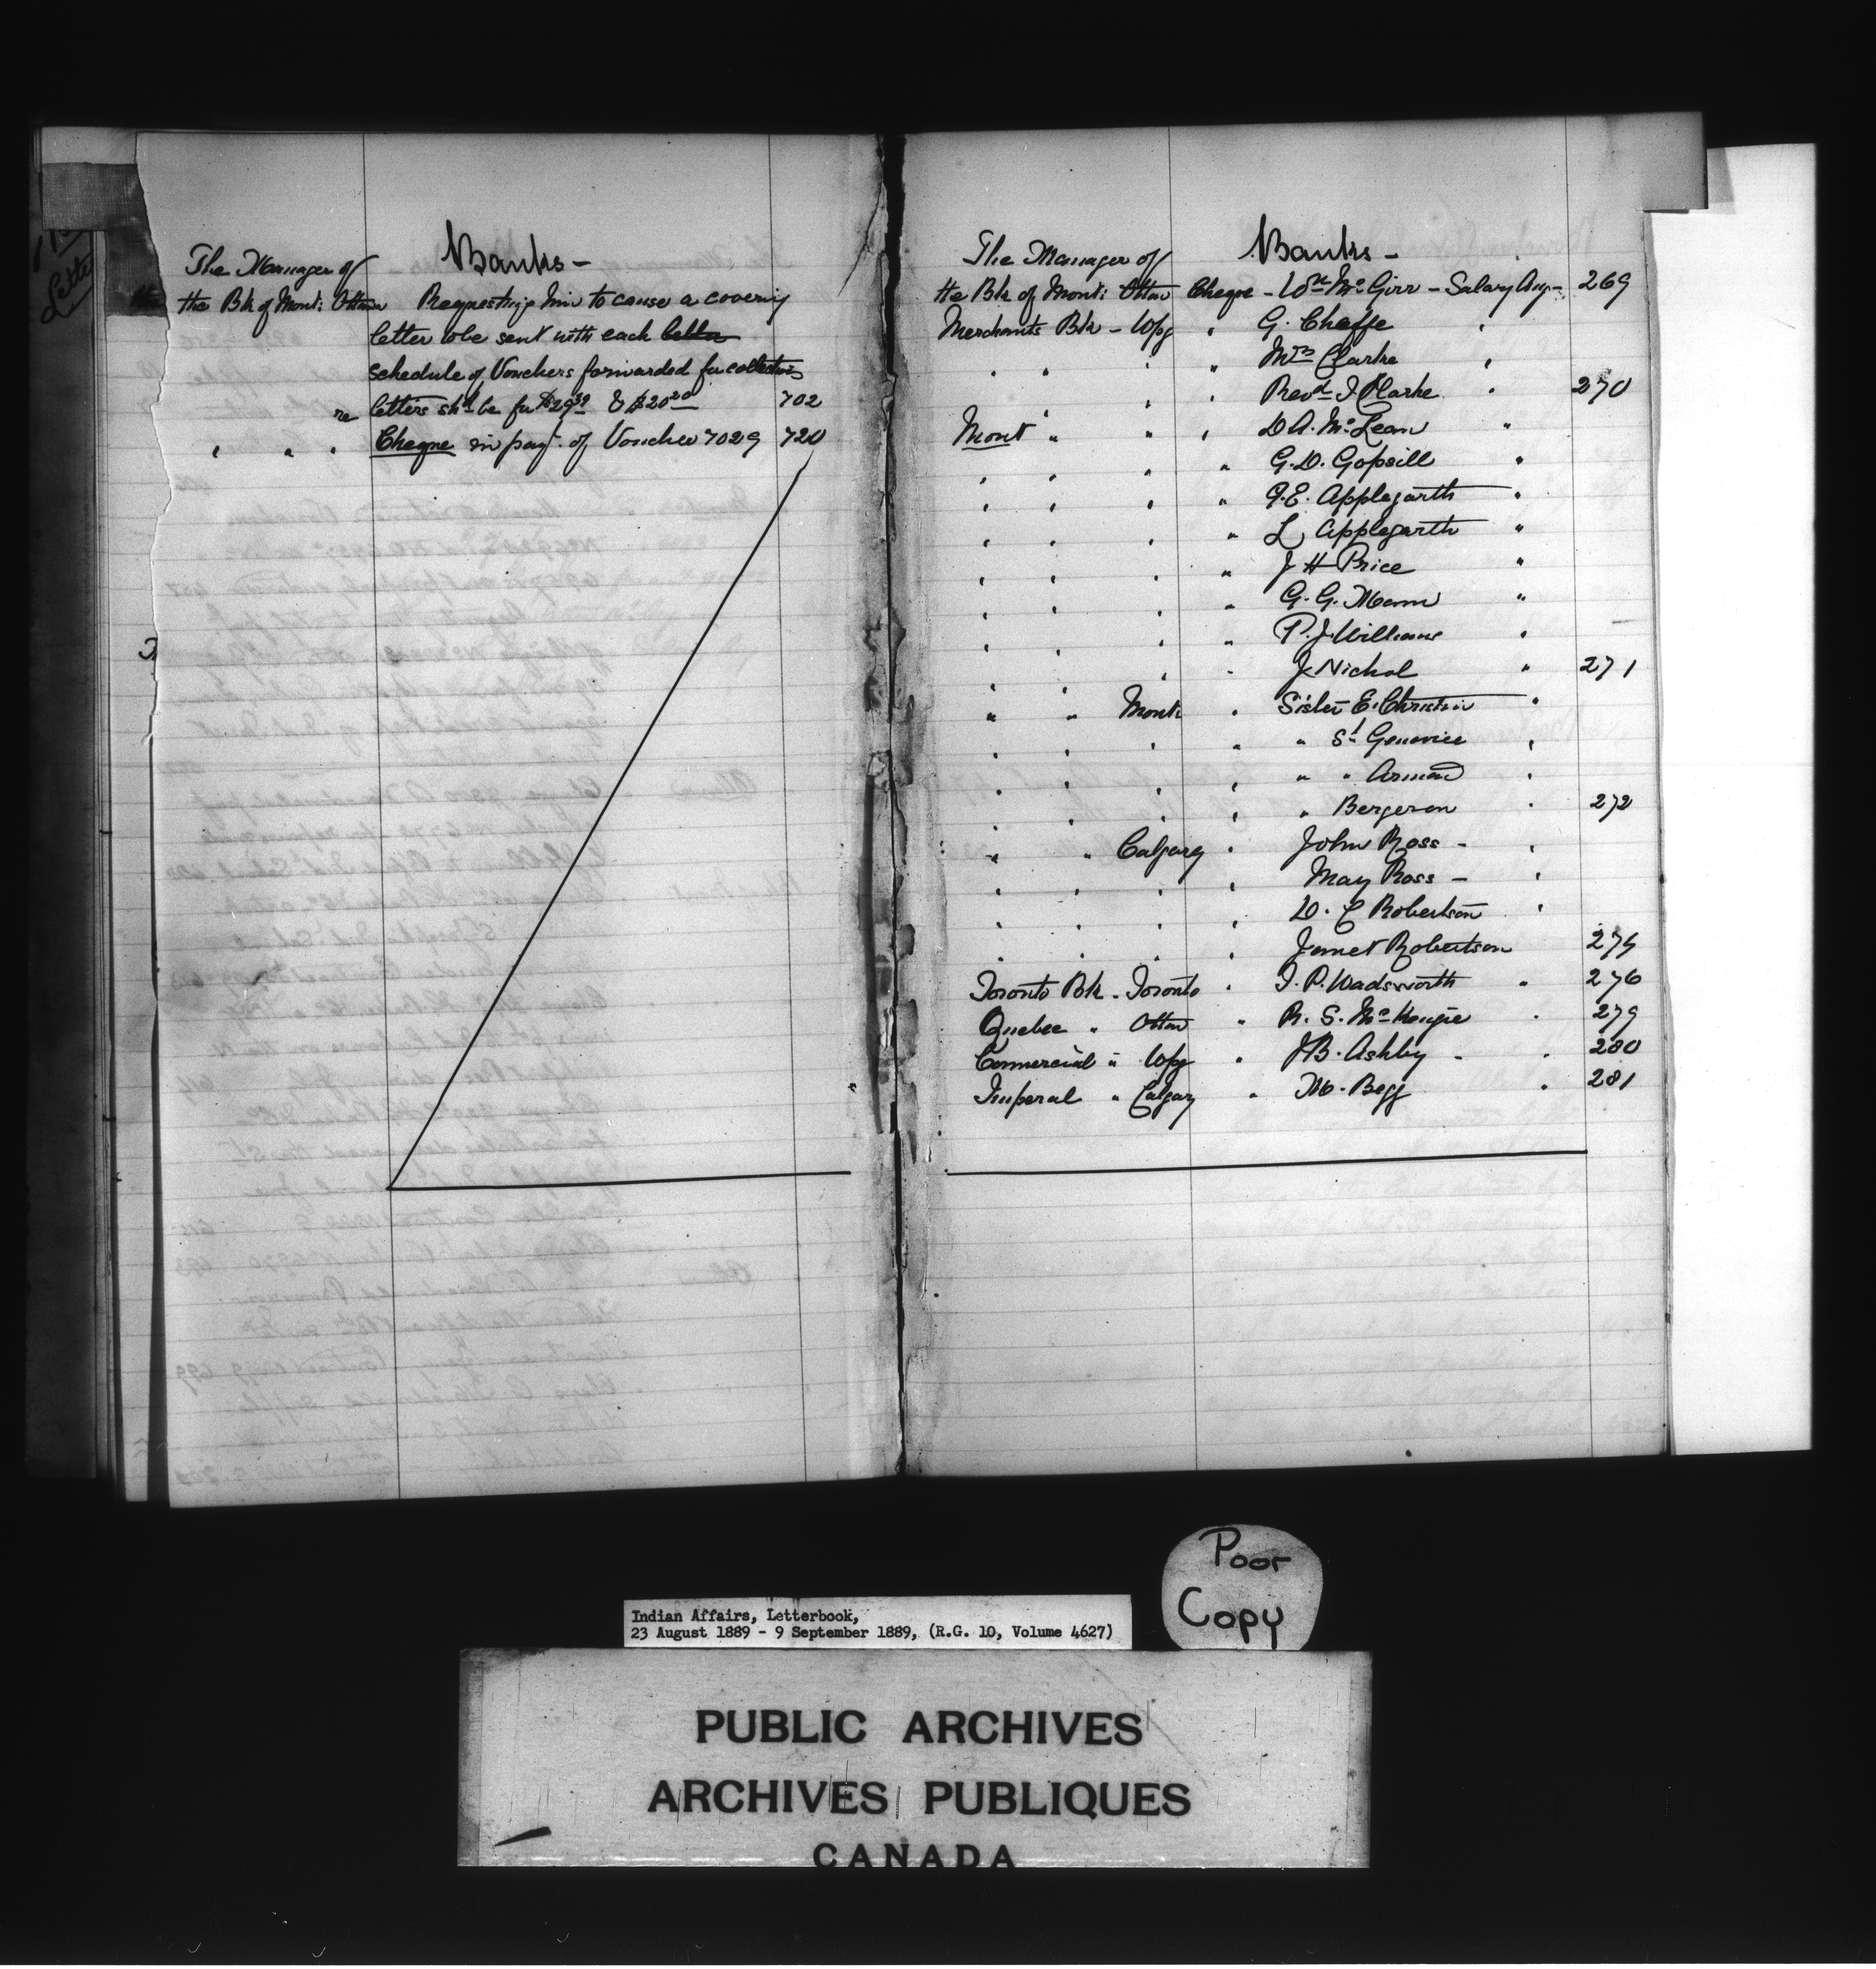 Banks -
The Manager of
the Bk of Mont: Ottaw Requesting him to cause a covering
letter to be sent with each letter
schedule of Vouchers forwarded for collection
re letters shd be for $29 39 & $20 20 702
" " " Cheque in payt. of Voucher 7029 720
Banks -
The Manager of
the Bk of Mont: Ottaw Cheque - Wm McGirr - Salary Aug - 269
Merchants Bk - Wpg " G. Chaffe "
" " " " Mrs Clarke "
" " " Revd J Clarke " 270
Mont " " " D A. McLean "
" " " " G. D. Gopsill "
" " " " J. E. Applegarth "
" " " " L Applegarth "
" " " " J H Price "
" " " " G. G. Mann "
" " " " P. J. Williams "
" " " " J Nichol " 271
" " Mont: " Sister E. Christin "
" " " " " St Genevice "
" " " " " " Armand "
" " " " " Bergeron " 272
" " Calgary " John Ross - "
" " " " May Ross - "
" " " " D. C Robertson "
" " " " Jamet Robertson 274
Toronto Bk - Toronto " T. P. Wadsworth " 276
Quebec " Ottaw " R. S. McKenzie " 279
Commercial " Wpg " J B. Ashby - " 280
Imperal " Calgary " M. Begg " 281
Poor
Copy
Indian Affairs, Letterbook,
23 August 1889 - 9 September 1889, (R.G. 10, Volume 4627)
PUBLIC ARCHIVES
ARCHIVES PUBLIQUES
CANADA